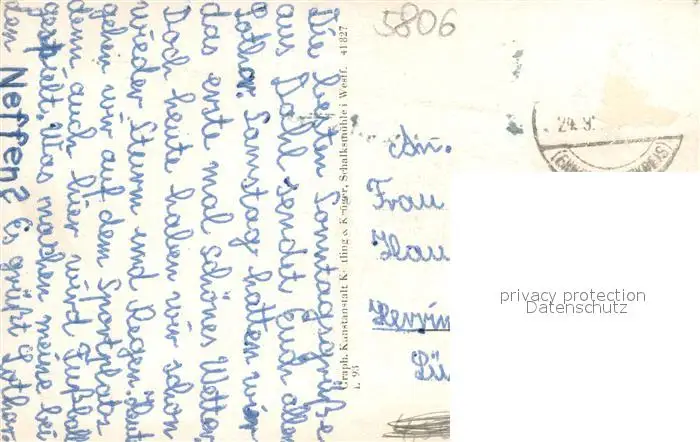 Die besten Sonntagsgrüße
aus Dahl sendet Euch allen
Lothar. Samstag hatten wir
das erste mal schönes Wetter.
Doch heute haben wir schon
wieder Sturm und Regen. Heut
gehen wir auf dem Sportplatz
denn auch hier wird Fußball
gespielt. Was machen meine bei
den Neffen? Es grüßt Lothar
Graph. Kunstanstalt Kettling & Krüger, Schalksmühle i. Westf. 41827
L 93
5806
24.9.
An.
Frau
Hau
Herrin
Lü
privacy protection
Datenschutz